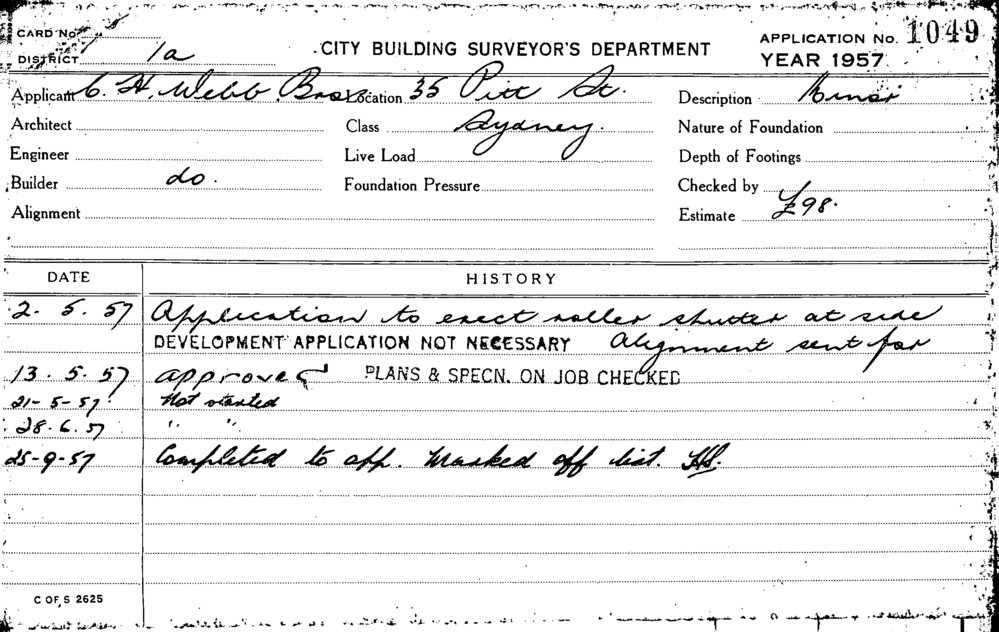 CARD No. 1
DISTRICT 1a
CITY BUILDING SURVEYOR'S DEPARTMENT
APPLICATION No. 1049
YEAR 1957
Applicant C. H. Webb Bros. Location 35 Pitt St. Description Minor
Architect Class Sydney. Nature of Foundation
Engineer Live Load Depth of Footings
Builder do. Foundation Pressure Checked by
Alignment Estimate £98.
DATE HISTORY
2. 5. 57 Application to erect roller shutter at side
DEVELOPMENT APPLICATION NOT NECESSARY Alignment sent for
13. 5. 57 approved PLANS & SPECN. ON JOB CHECKED
21-5-57 Not started
28. 6. 57 " "
25-9-57 Completed to app. Marked off list.
C OF S 2625